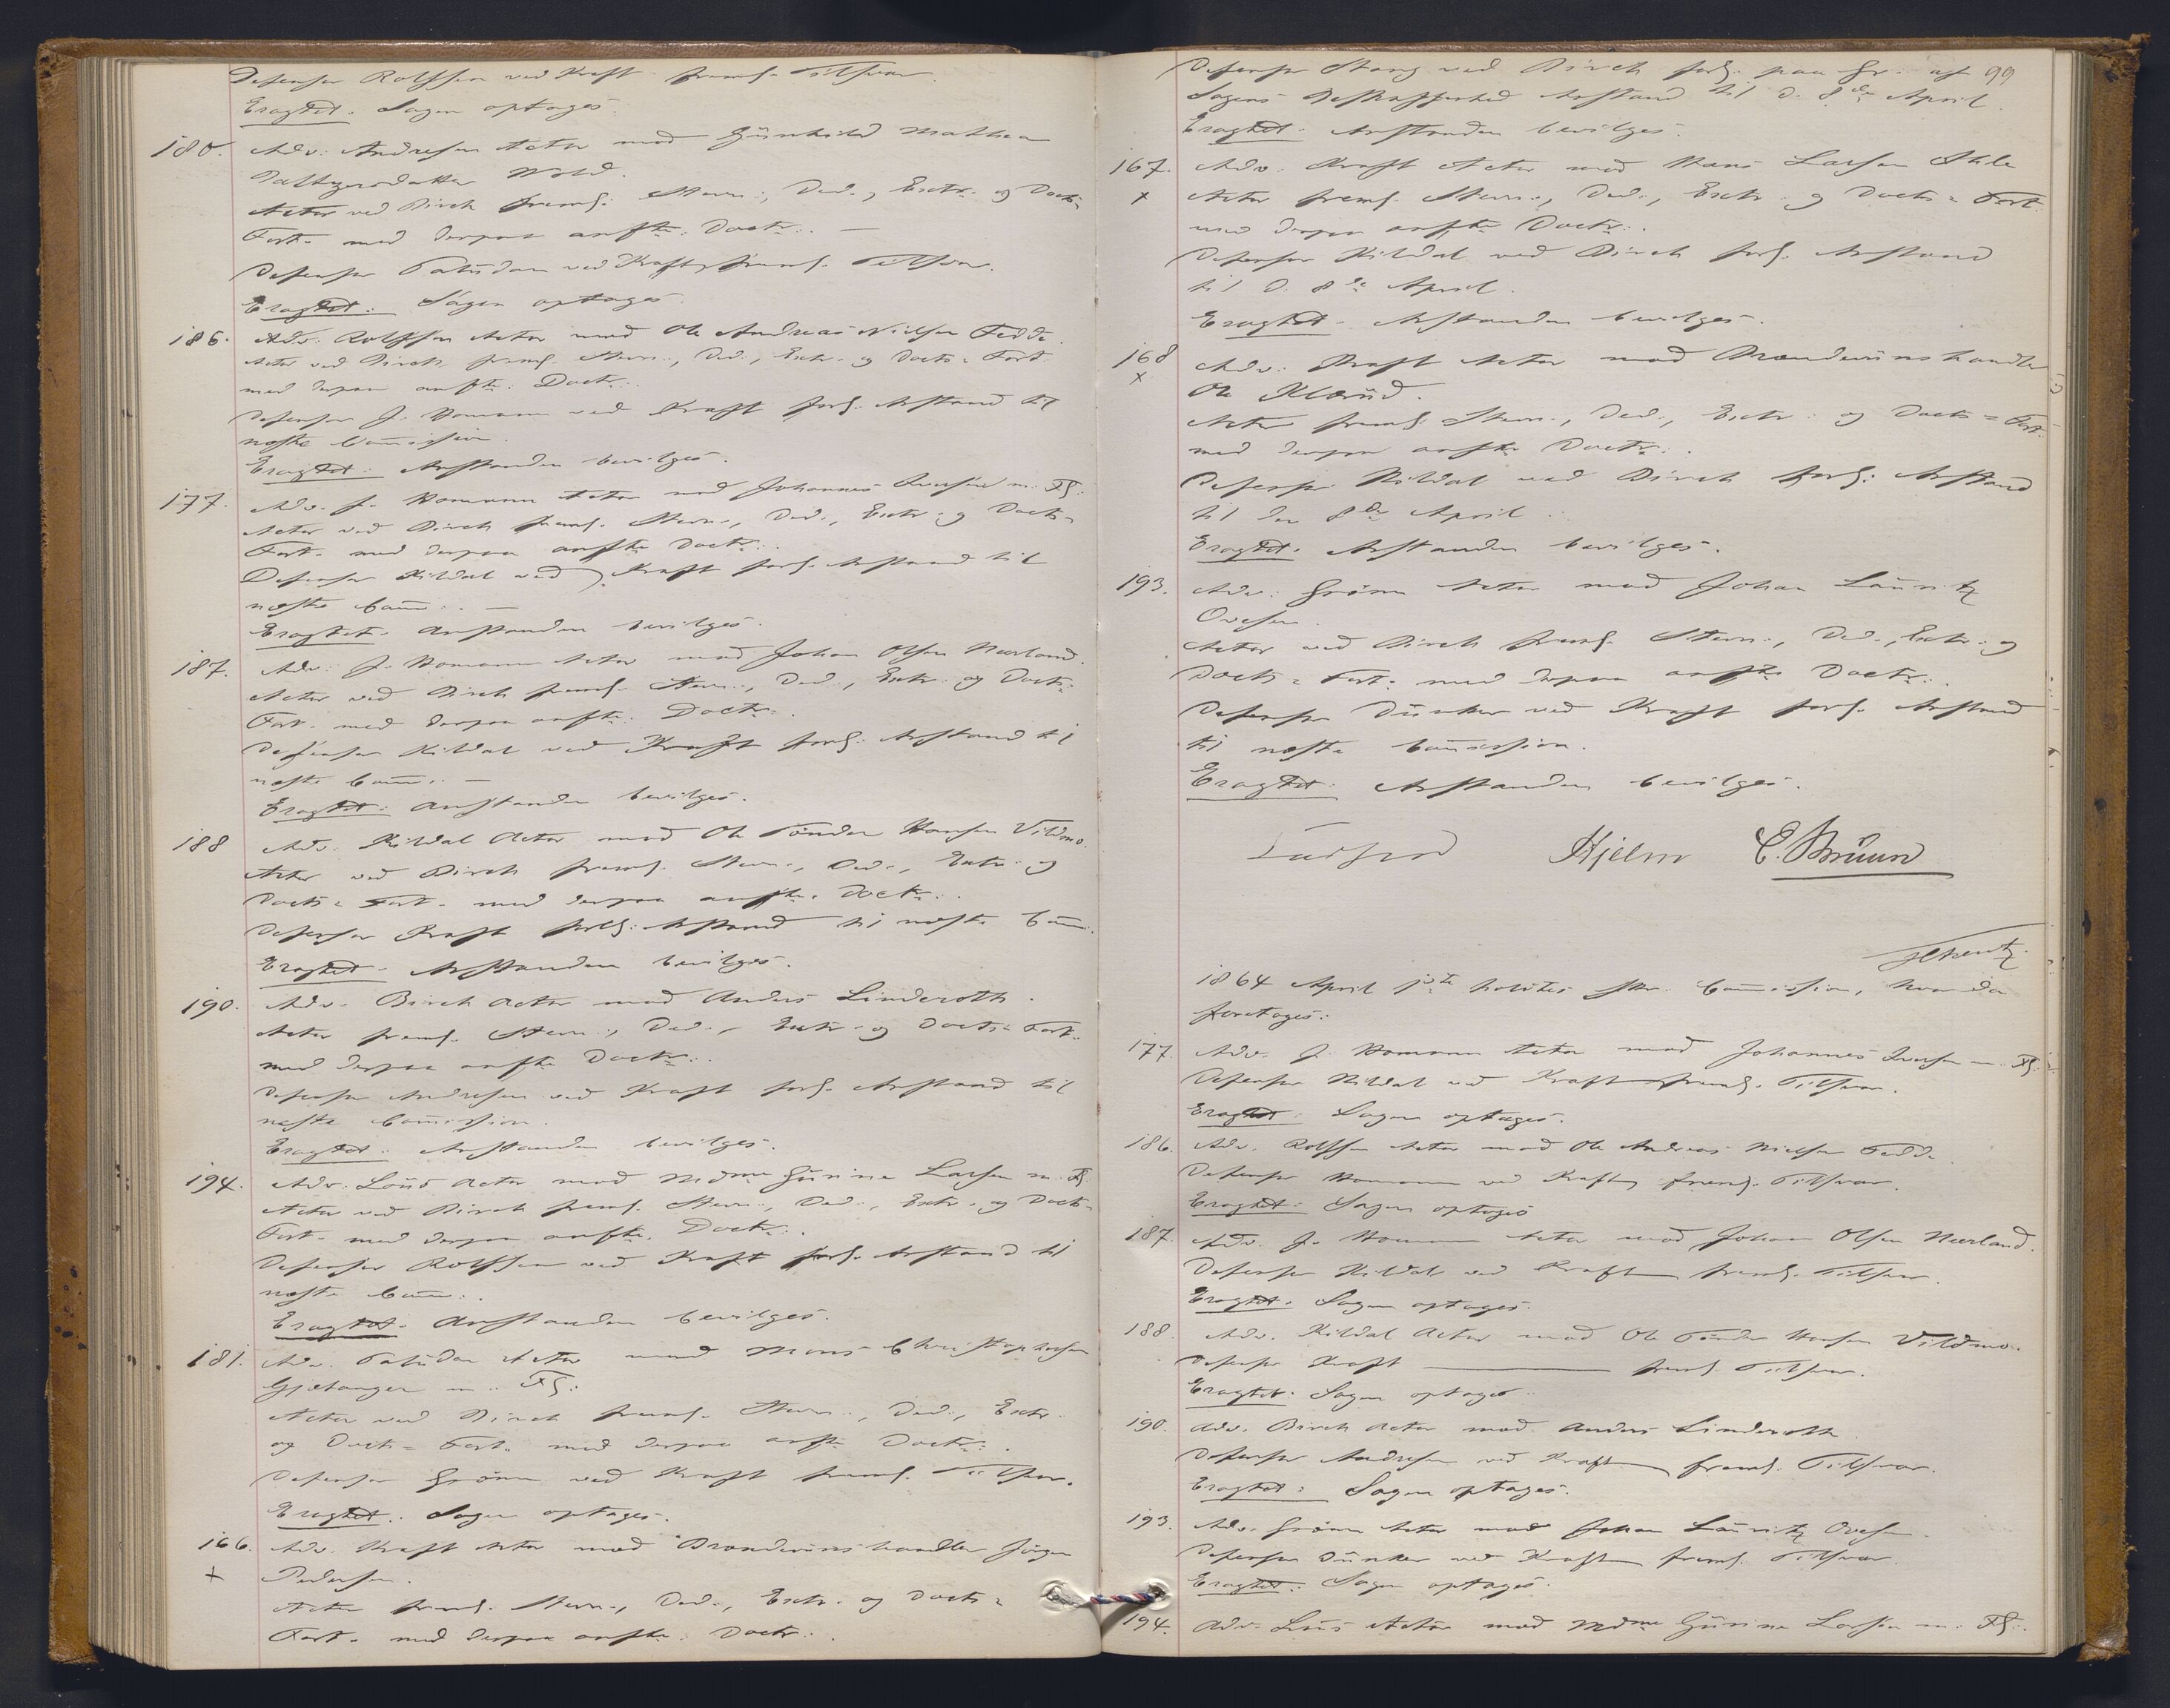 Defensor Rolfsen ved Kraft freml. Tilsvar.
Eragtet: Sagen optages.
180. Adv: Andresen Actor mod Gunhild Mathea
Actor ved Birch freml: Stevn:, Ded:, Extr: og Docts=
Fort. med derpaa anførte Doctr:. —
Defensor Paludan ved Kraft freml. Tilsvar.
Eragtet: Sagen optages.
186. Adv: Rolfsen Actor mod Ole Andreas Nielsen Fedde.
Actor ved Birch freml. Stevn:, Ded:, Extr. og Docts= Fort.
med derpaa anførte: Doctr:.
Defensor J. Homann ved Kraft forl. Anstand til
næste Commission.
Eragtet: Anstanden bevilges.
177. Adv. J. Homann Actor mod Johannes Iversen m: Fl:
Actor ved Birch freml. Stevn:, Ded:, Extr: og Docts=
Fort. med derpaa anførte Doctr:.
Defensor Kildal ved Kraft forl. Anstand til
næste Comm:. —
Eragtet. Anstanden bevilges.
187. Adv: J. Homann Actor mod Johan Olsen Nerland.
Actor ved Birch freml. Stevn:, Ded:, Extr: og Docts=
Fort. med derpaa anførte: Doctr:.
Defensor Kildal ved Kraft forl: Anstand til
næste Comm:. —
Eragtet: Anstanden bevilges.
188 Adv. Kildal Actor mod Ole Tönder Hansen Vildmo.
Actor ved Birch freml. Stevn:, Ded:, Extr: og
Docts= Fort. med derpaa anførte. Doctr:.
Defensor Kraft forl: Anstand til næste Comm:
Eragtet. Anstanden bevilges.
190. Adv. Birch Actor mod Anders Linderoth.
Actor freml. Stevn:, Ded:, Extr: og Docts= Fort.
med derpaa anførte Doctr:.
Defensor Andresen ved Kraft forl. Anstand til
næste Commission.
Eragtet: Anstanden bevilges.
194. Adv: Lous Actor mod Mdme Gurine Larsen m. Fl.
Actor ved Birch freml. Stevn:, Ded:, Extr: og Docts=
Fort. med derpaa anførte. Doctr:.
Defensor Rolfsen ved Kraft forl. Anstand til
næste Comm:.
Eragtet: Anstanden bevilges.
181. Adv. Paludan Actor mod Mons Christophersen
Gjetanger m: Fl:
Actor ved Birch freml. Stevn:, Ded:, Extr.
og Docts= Fort. med derpaa anførte Doctr:.
Defensor Grönn ved Kraft freml. Tilsvar.
Eragtet: Sagen optages.
166. Adv. Kraft Actor mod Brændeviinshandler Jörgen
+ Pedersen.
Actor freml. Stevn:, Ded:, Extr. og Docts=
Fort. med derpaa anførte: Doctr:.
99
Defensor Stang ved Birch forl. paa Gr. af
Sagens Anstand til d. 8de April.
Eragtet: Anstanden bevilges.
167. Adv. Kraft Actor mod Hans Larsen
+ Actor freml. Stevn:, Ded:, Extr: og Docts= Fort.
med derpaa anførte Doctr:.
Defensor Kildal ved Birch forl. Anstand
til d. 8de April.
Eragtet. Anstanden bevilges.
168 Adv: Kraft Actor mod Brændeviinshandler
+ Ole Klerud.
Actor freml. Stevn:, Ded:, Extr: og Docts= Fort.
med derpaa anførte Doctr:.
Defensor Kildal ved Birch forl. Anstand
til den 8de April.
Eragtet: Anstanden bevilges.
193. Adv: Grönn Actor mod Johan Lauritz
Ovesen.
Actor ved Birch freml. Stevn:, Ded:, Extr: og
Docts= Fort. med derpaa anførte Doctr:.
Defensor Dunker ved Kraft forl. Anstand
til næste Commission.
Eragtet: Anstanden bevilges.
Hjelm C. Bruun
1864 April 1ste holdtes Commission, hvor da
foretoges:
177. Adv. J. Homann Actor mod Johannes Iversen m: Fl:
Defensor Kildal ved Kraft freml. Tilsvar.
Eragtet: Sagen optages.
186. Adv. Rolfsen Actor mod Ole Andreas Nielsen Fedde.
Defensor Homann ved Kraft freml. Tilsvar.
Eragtet: Sagen optages
187. Adv. J. Homann Actor mod Johan Olsen Nerland.
Defensor Kildal ved Kraft freml. Tilsvar.
Eragtet. Sagen optages.
188. Adv. Kildal Actor mod Ole Tönder Hansen Vildmo.
Defensor Kraft — freml. Tilsvar.
Eragtet: Sagen optages.
190. Adv. Birch Actor mod Anders Linderoth.
Defensor Andresen ved Kraft freml. Tilsvar.
Eragtet: Sagen optages.
193. Adv. Grönn Actor mod Johan Lauritz Ovesen.
Defensor Dunker ved Kraft freml. Tilsvar.
Eragtet: Sagen optages.
194. Adv. Lous Actor mod Mdme Gurine Larsen m: Fl:.